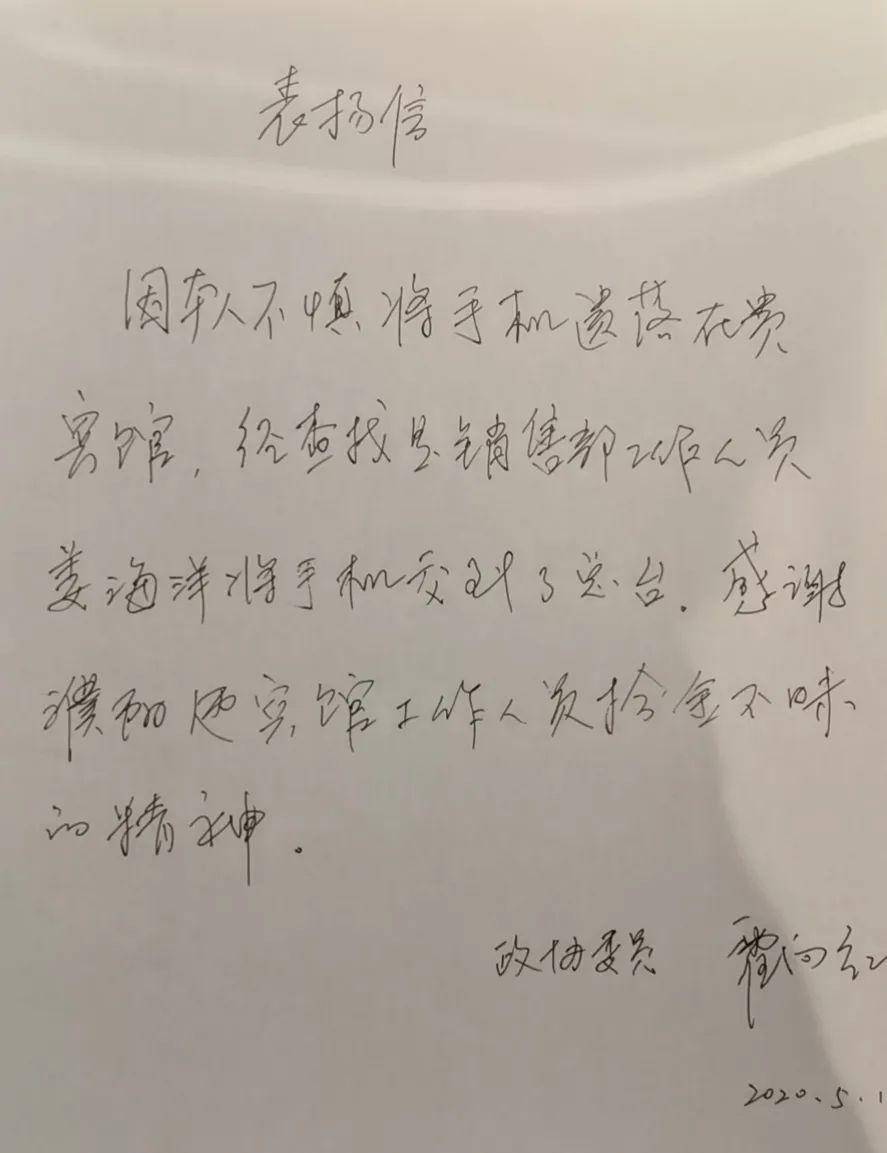 表扬信
因本人不慎将手机遗落在贵
宾馆，经查找是销售部工作人员
娄海洋将手机交到了总台。感谢
濮阳迎宾馆工作人员拾金不昧
的精神。
政协委员 霍向红
2020.5.1